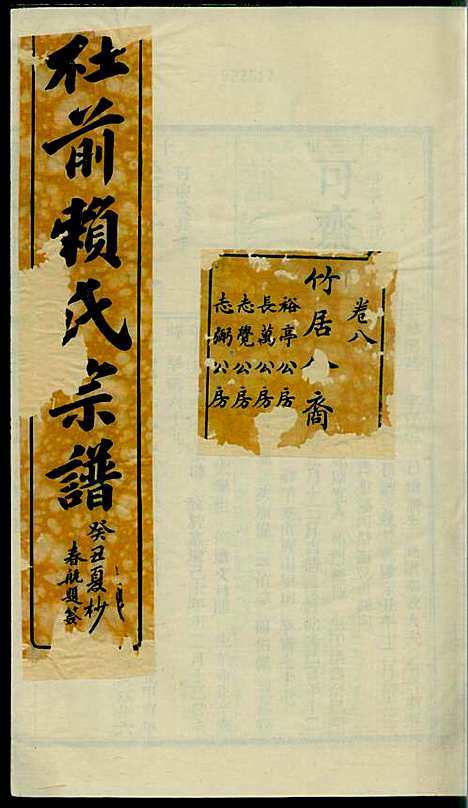 卷八
竹居公裔
裕亭公房
長萬公房
志覺公房
志弼公房
社前賴氏宗譜
癸丑夏杪
春航題簽